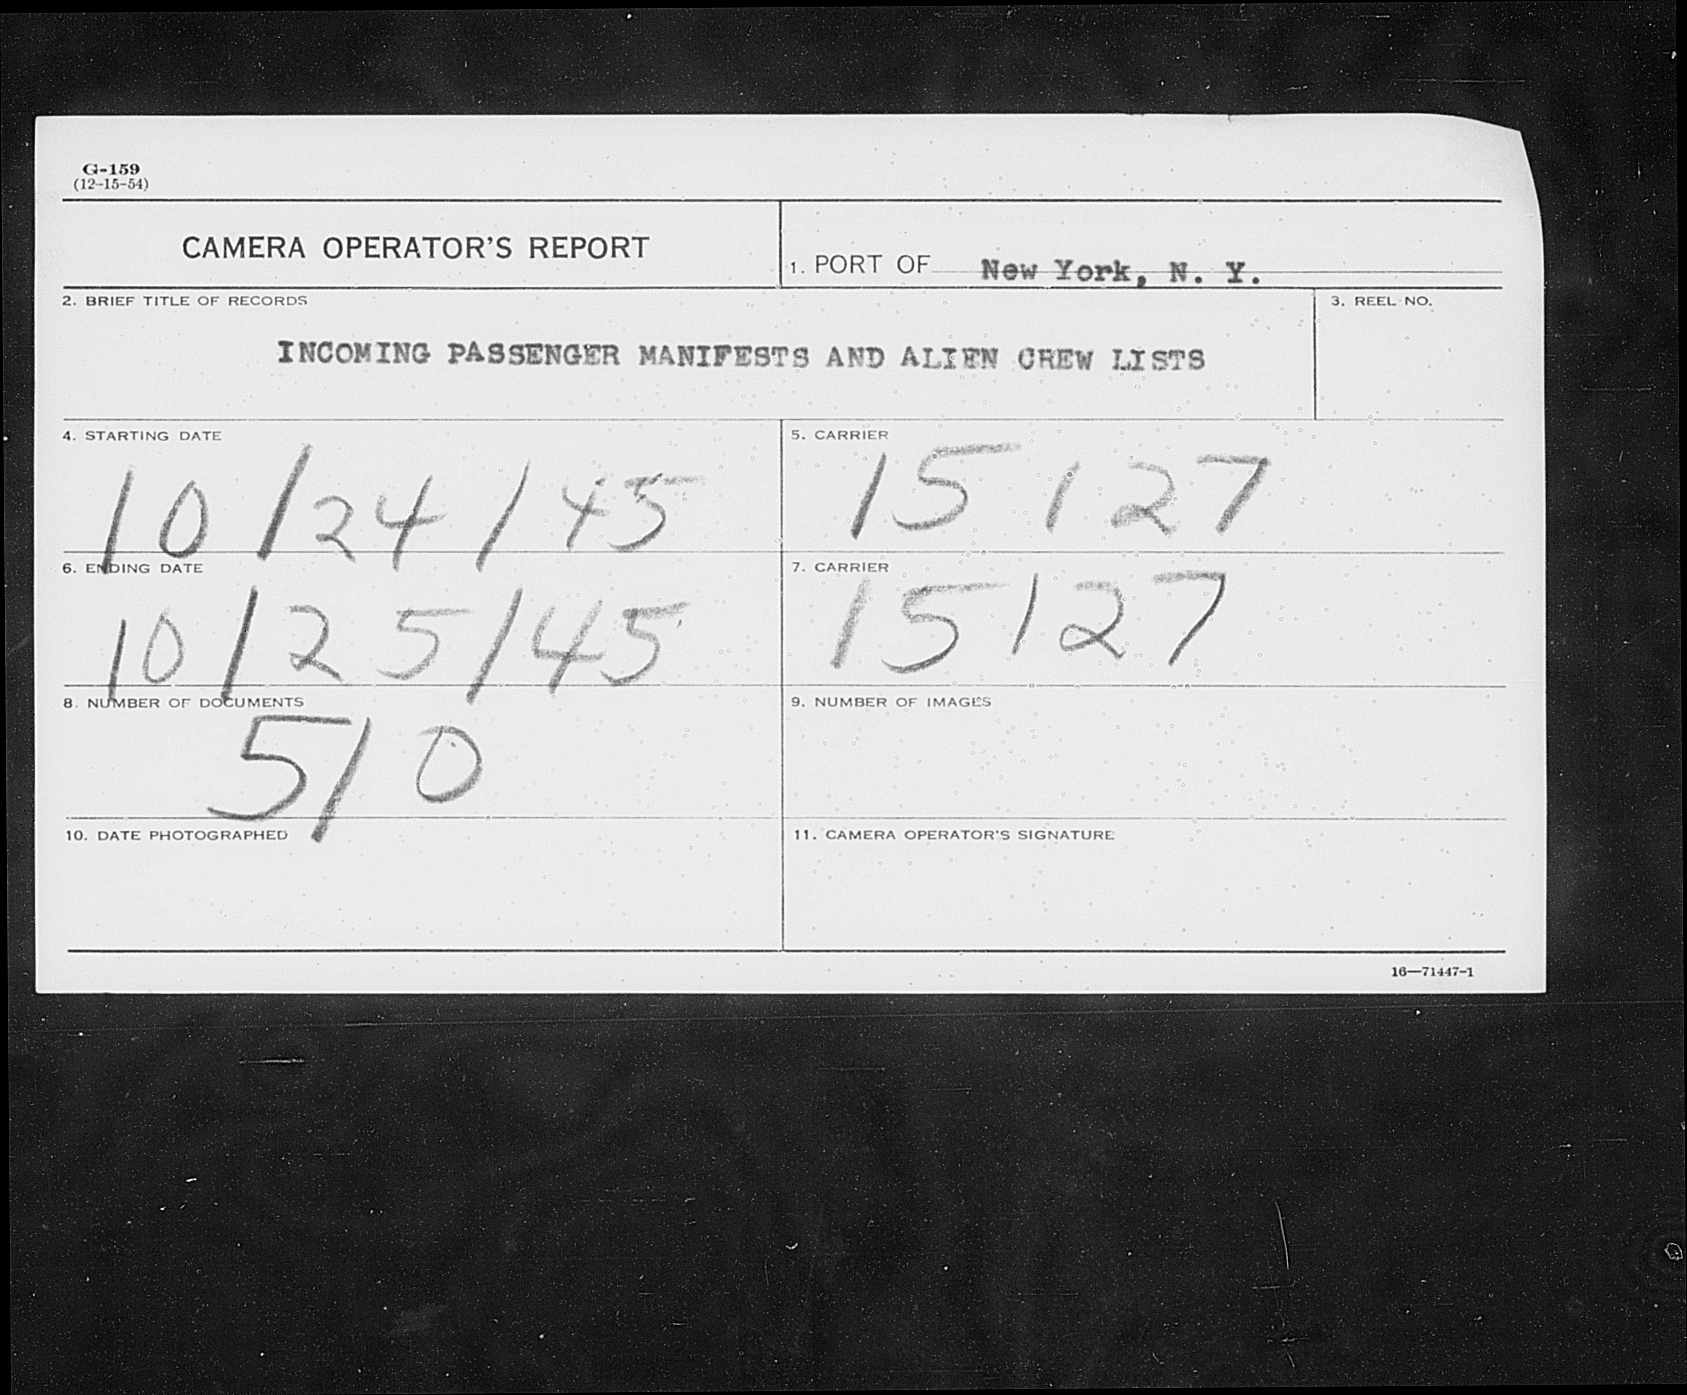 G-159
(12-15-54)
CAMERA OPERATOR'S REPORT
1. PORT OF New York, N. Y.
2. BRIEF TITLE OF RECORDS
3. REEL NO.
INCOMING PASSENGER MANIFESTS AND ALIEN CREW LISTS
4. STARTING DATE
5. CARRIER
10/24/45
15127
6. ENDING DATE
7. CARRIER
10/25/45
15127
8. NUMBER OF DOCUMENTS
9. NUMBER OF IMAGES
510
10. DATE PHOTOGRAPHED
11. CAMERA OPERATOR'S SIGNATURE
16—71447-1